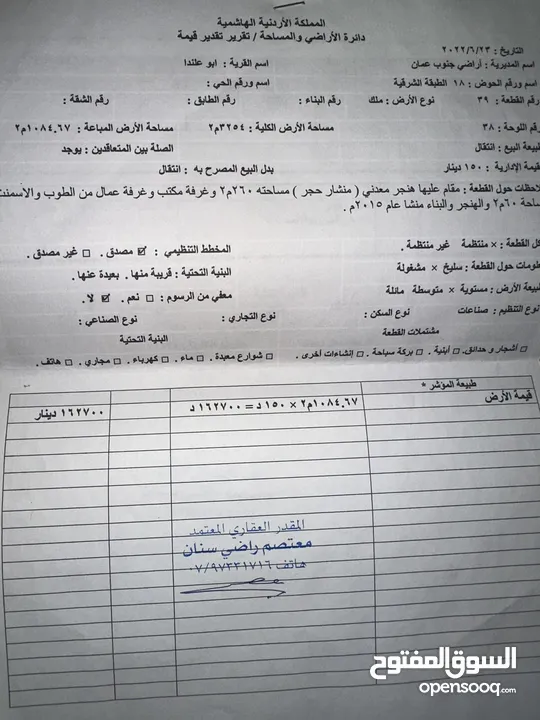 المملكة الأردنية الهاشمية
دائرة الأراضي والمساحة / تقرير تقدير قيمة
التاريخ : ٢٠٢٢/٦/٢٣
اسم المديرية : أراضي جنوب عمان اسم القرية : ابو علندا
اسم ورقم الحوض : ١٨ الطبقة الشرقية اسم ورقم الحي :
رقم القطعة : ٣٩ نوع الأرض : ملك رقم البناء : رقم الطابق : رقم الشقة :
رقم اللوحة : ٣٨ مساحة الأرض الكلية : ٣٢٥٤م٢ مساحة الأرض المباعة : ١٠٨٤.٦٧م٢
طبيعة البيع : انتقال الصلة بين المتعاقدين : يوجد
القيمة الإدارية : ١٥٠ دينار بدل البيع المصرح به : انتقال
لاحظات حول القطعة : مقام عليها هنجر معدني ( منشار حجر ) مساحته ٢٦٠م٢ وغرفة مكتب وغرفة عمال من الطوب والاسمنت
ساحة ٦٠م٢ والهنجر والبناء منشا عام ٢٠١٥م .
كل القطعة : × منتظمة غير منتظمة . المخطط التنظيمي : ☑ مصدق . □ غير مصدق .
لومات حول القطعة : سليخ × مشغولة البنية التحتية : قريبة منها . بعيدة عنها .
بيعة الأرض : مستوية × متوسطة مائلة معفي من الرسوم : □ نعم . ☑ لا .
نوع التنظيم : صناعات نوع السكن : نوع التجاري : نوع الصناعي :
مشتملات القطعة البنية التحتية
□ أشجار و حدائق . □ أبنية . □ بركة سباحة . □ إنشاءات أخرى . □ شوارع معبدة . □ ماء . □ كهرباء . □ مجاري . □ هاتف .
طبيعة المؤشر *
قيمة الأرض ١٠٨٤.٦٧م٢ × ١٥٠ د = ١٦٢٧٠٠ د ١٦٢٧٠٠ دينار
المقدر العقاري المعتمد
معتصم راضي سنان
هاتف ٠٧/٩٧٣٣١٧١٦
السوق المفتوح
opensooq.com